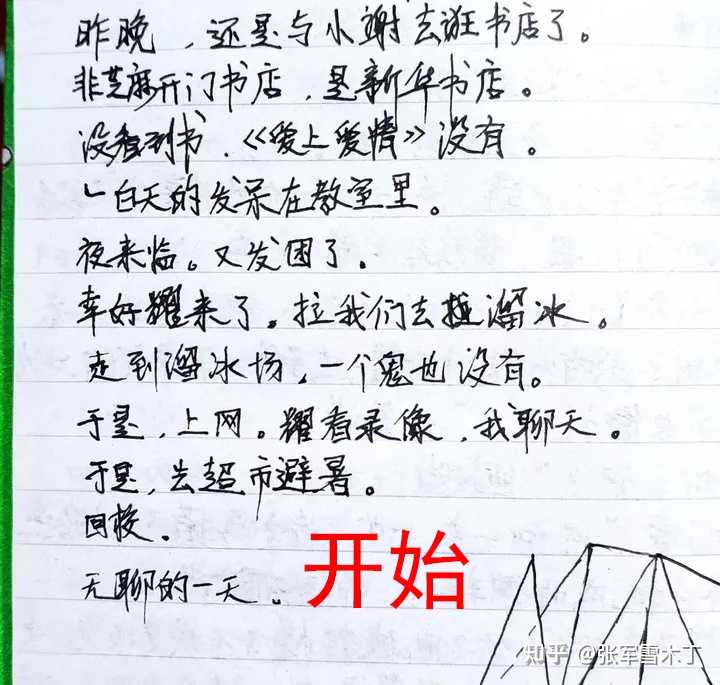 昨晚，还是与小谢去逛书店了。
非芝麻开门书店，是新华书店。
没看到书，《爱上爱情》没有。
一白天的发呆在教室里。
夜来临。又发困了。
幸好耀来了。拉我们去溜冰。
走到溜冰场，一个鬼也没有。
于是，上网。耀看录像，我聊天。
于是，去超市避暑。
回校。
无聊的一天。
开始
知乎 @张军雪木丁